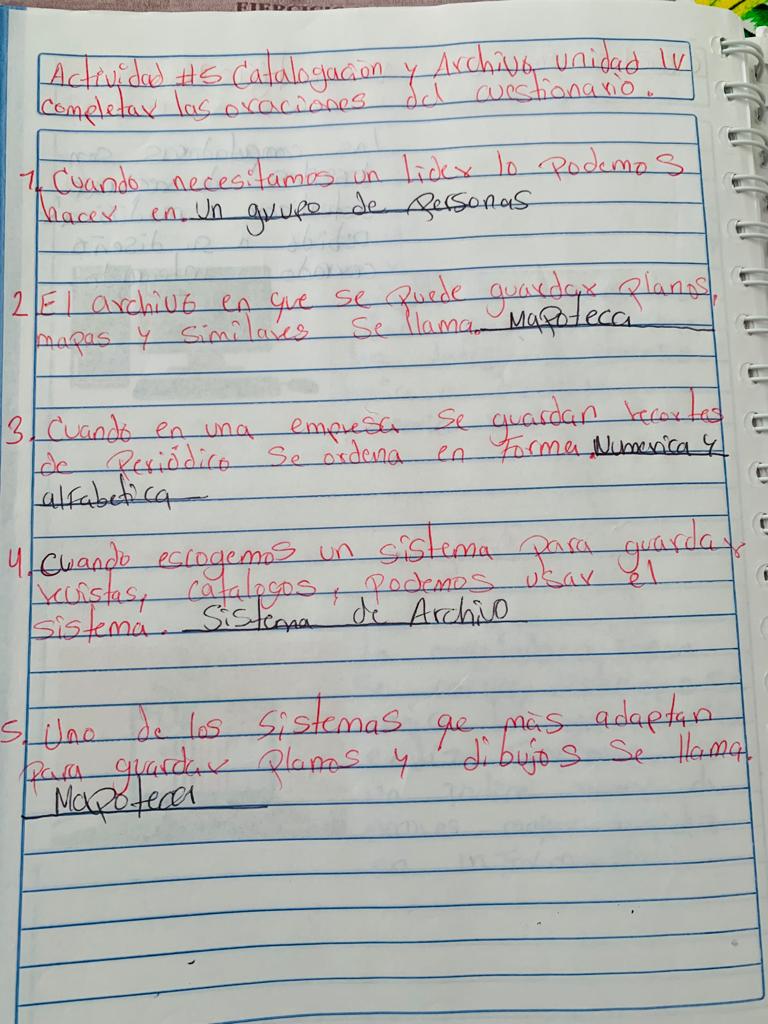 Actividad #5 Catalogación y Archivo, unidad IV
completar las oraciones del cuestionario.
1. Cuando necesitamos un lider lo podemos
hacer en. Un grupo de personas
2 El archivo en que se puede guardar planos,
mapas y similares se llama. Mapoteca
3. Cuando en una empresa se guardan recortes
de periódico se ordena en forma. Numerica y
alfabetica
4. Cuando escogemos un sistema para guardar
revistas, catálogos, podemos usar el
sistema. Sistema de Archivo
5. Uno de los sistemas qe más adaptan
para guardar planos y dibujos se llama.
Mapoteca